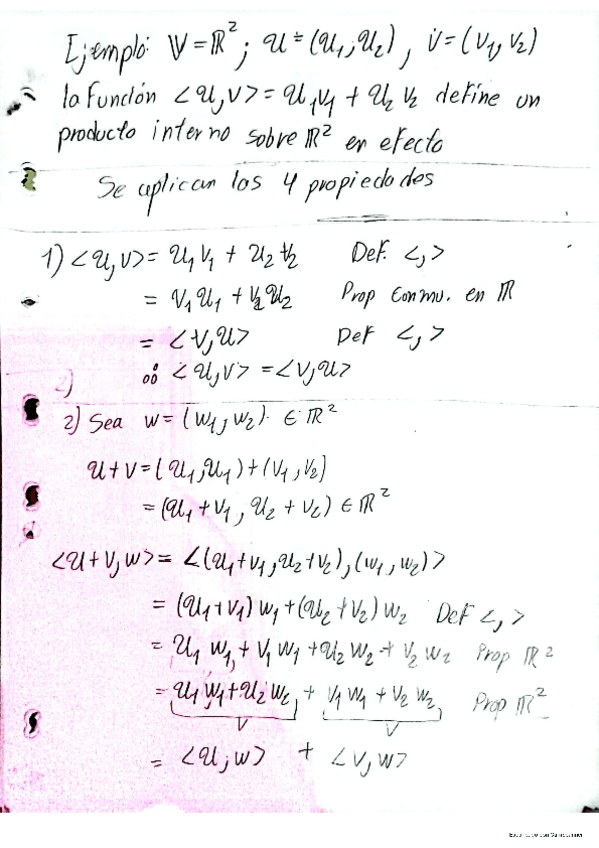 Ejemplo: V = ℝ²; u = (u₁, u₂), v = (v₁, v₂)
la función <u,v> = u₁v₁ + u₂ v₂ define un
producto interno sobre ℝ² en efecto
Se aplican las 4 propiedades
1) <u,v> = u₁v₁ + u₂ v₂ Def. <,>
= v₁u₁ + v₂u₂ Prop Conmu. en ℝ
= <v,u> Def <,>
∴ <u,v> = <v,u>
2)
2) Sea w = (w₁, w₂) ∈ ℝ²
u+v = (u₁,u₁) + (v₁, v₂)
= (u₁+v₁, u₂+v₂) ∈ ℝ²
<u+v,w> = <(u₁+v₁,u₂+v₂),(w₁,w₂)>
= (u₁+v₁) w₁+(u₂+v₂) w₂ Def <,>
= u₁ w₁ + v₁ w₁ + u₂ w₂ + v₂ w₂ Prop ℝ²
= u₁ w₁ + u₂ w₂ + v₁ w₁ + v₂ w₂ Prop ℝ²
= <u,w> + <v,w>